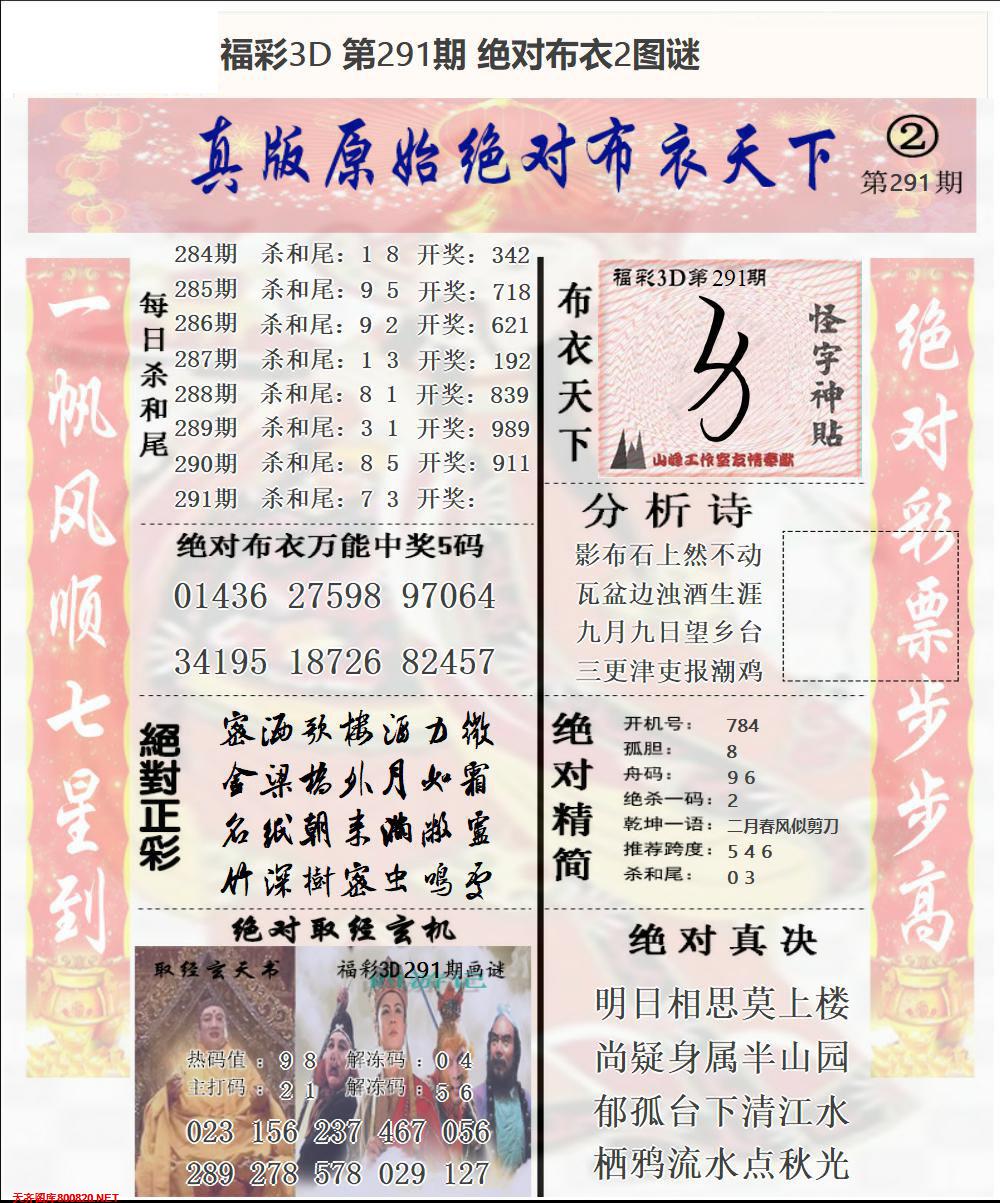 福彩3D 第291期 绝对布衣2图谜
真版原始绝对布衣天下
②
第291期
一帆风顺七星到
每日杀和尾
284期 杀和尾：1 8 开奖：342
285期 杀和尾：9 5 开奖：718
286期 杀和尾：9 2 开奖：621
287期 杀和尾：1 3 开奖：192
288期 杀和尾：8 1 开奖：839
289期 杀和尾：3 1 开奖：989
290期 杀和尾：8 5 开奖：911
291期 杀和尾：7 3 开奖：
绝对布衣万能中奖5码
01436 27598 97064
34195 18726 82457
絕對正彩
金梁橋外月如霜
竹深樹密虫鳴
绝对取经玄机
取经玄天书
福彩3D291期画谜
热码值：9 8 解冻码：0 4
主打码：2 1 解冻码：5 6
023 156 237 467 056
289 278 578 029 127
布衣天下
福彩3D第291期
怪字神貼
山峰工作室友情奉献
分析诗
影布石上然不动
瓦盆边浊酒生涯
九月九日望乡台
三更津吏报潮鸡
绝对精简
开机号：784
孤胆：8
舟码：9 6
绝杀一码：2
乾坤一语：二月春风似剪刀
推荐跨度：5 4 6
杀和尾：0 3
绝对真决
明日相思莫上楼
尚疑身属半山园
郁孤台下清江水
栖鸦流水点秋光
绝对彩票步步高
天齐图库800820.NET